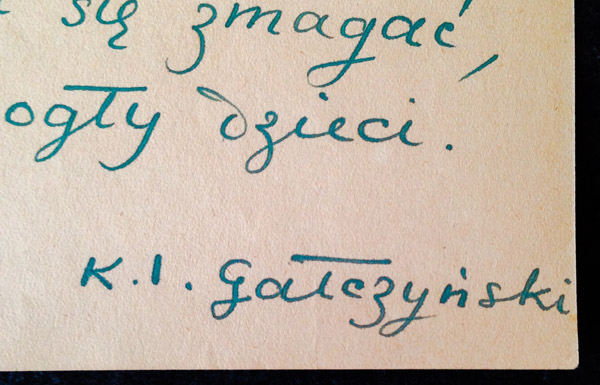 się zmagać,
ogły dzieci.
K. I. Gałczyński